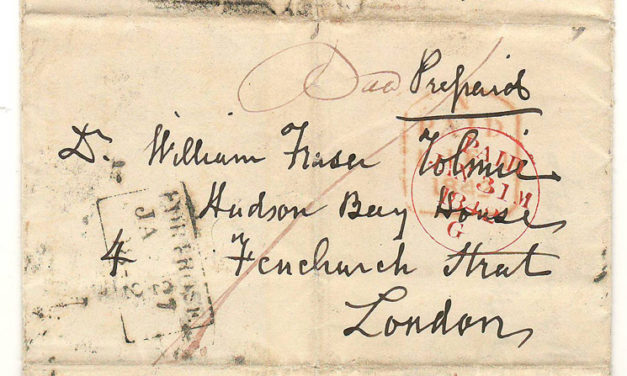 Prepaid
Dr. William Fraser Tolmie
Hudson Bay House
4 Fenchurch Street
London
PAID
31
1842
G
JA 27